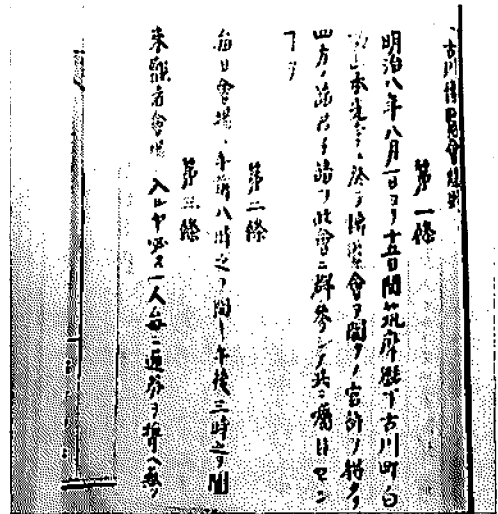 古川博覧會規則
第一條
明治八年八月一日ヨリ十五日間筑摩縣下古川町白
山本光寺ニ於テ博覧會ヲ開クノ官許ヲ得タリ
四方ノ諸君子請フ此會ニ群參シテ共ニ囑目セン
ヿヲ
第二條
毎日會場ハ午前八時之ヲ開キ午後三時之ヲ閉
第三條
来觀者會場ニ入ルヤ必ス一人毎ニ通券ヲ